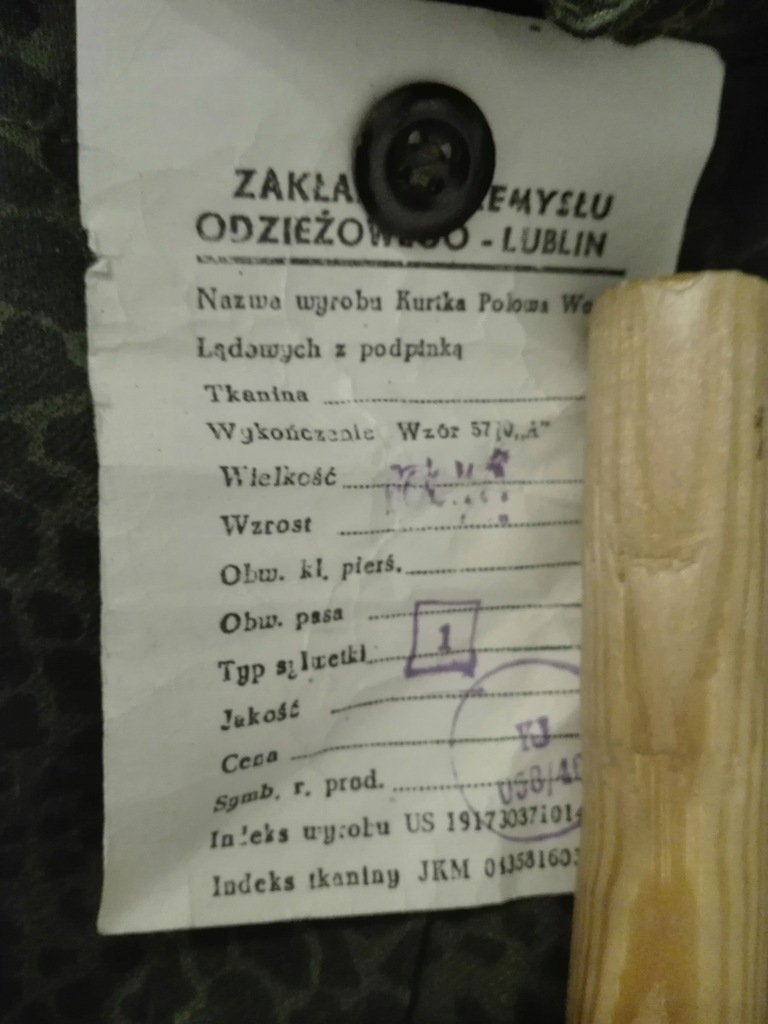 ZAKŁA EMYSŁU
ODZIEŻOWEGO - LUBLIN
Nazwa wyrobu Kurtka Polowa Wo
Lądowych z podpinką
Tkanina
Wykończenie Wzór 57/0„A"
Wielkość
Wzrost
Obw. kl. pierś.
Obw. pasa
Typ sylwetki
1
Jakość
Cena
KJ
Symb. r. prod.
Indeks wyrobu US
Indeks tkaniny JKM